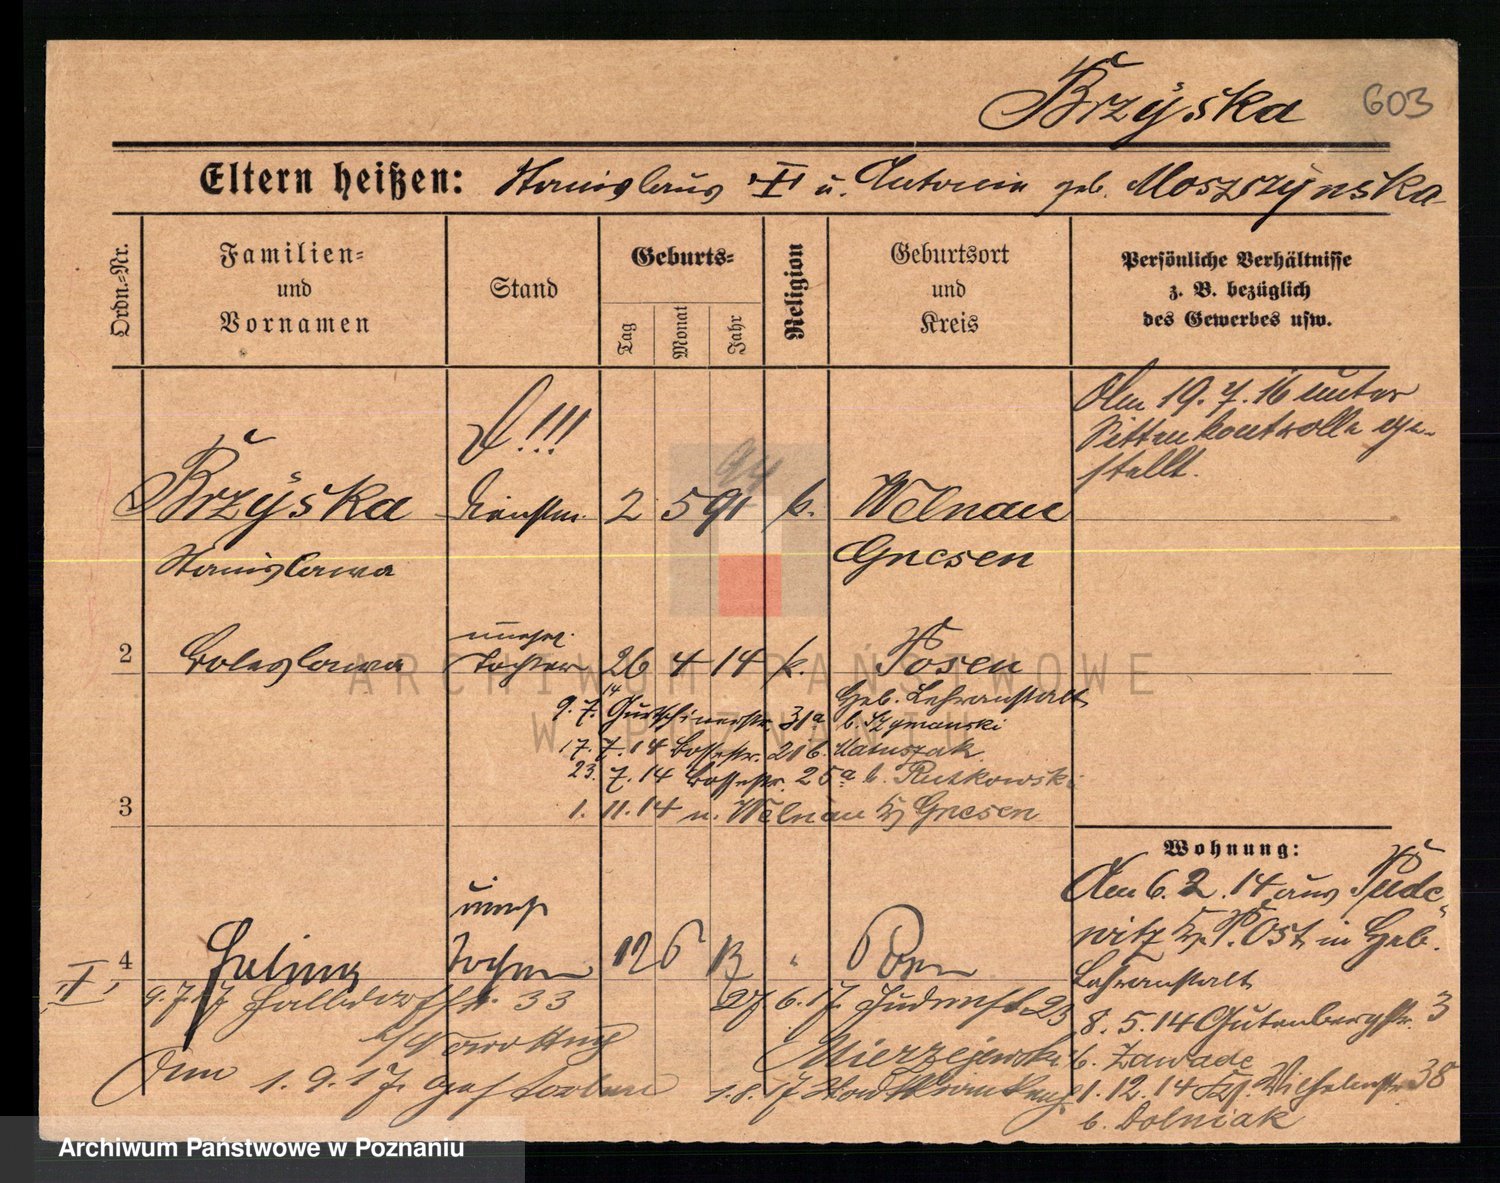 Brzyska 603
Eltern heißen: Stanislaus u. Antonie geb. Moszszynska
Ordn.-Nr.
Familien- und Vornamen
Stand
Geburts-
Tag
Monat
Jahr
Religion
Geburtsort und Kreis
Persönliche Verhältnisse z. B. bezüglich des Gewerbes usw.
Am 19. 7. 16 unter
Sittenkontrolle ge-
stellt.
!!!
94
1 Brzyska Dienstm. 2 5 91 k. Welnau
Stanislawa Gnesen
unehel.
2 Boleslawa Tochter 26 4 14 k. Posen
Geb. Lehranstalt
9. 7. 14 Gurtschinerstr. 31a b. Szymanski
17. 7. 14 Bossestr. 21b. Matuszak
23. 7. 14 Bossestr. 25a b. Rutkowski
3
1. 11. 14 n. Welnau Kr Gnesen
Wohnung:
Am 6. 2. 14 aus Pude-
witz Kr. P. Ost in Geb.
Lehranstalt
8. 5. 14 Gutenbergstr. 3
b. Zawade
1. 12. 14 Wilhelmstr. 38
b. Dolniak
unehel
4 Halina Tochter 12 6 17 " Posen
I
9. 7. 17 Halbdorfstr. 33
27 6. 17 23
Mierzejewski
1. 8. 17 Stadtkrankenh
Am 1. 9. 17 gestorben
ARCHIWUM PAŃSTWOWE
W POZNANIU
Archiwum Państwowe w Poznaniu